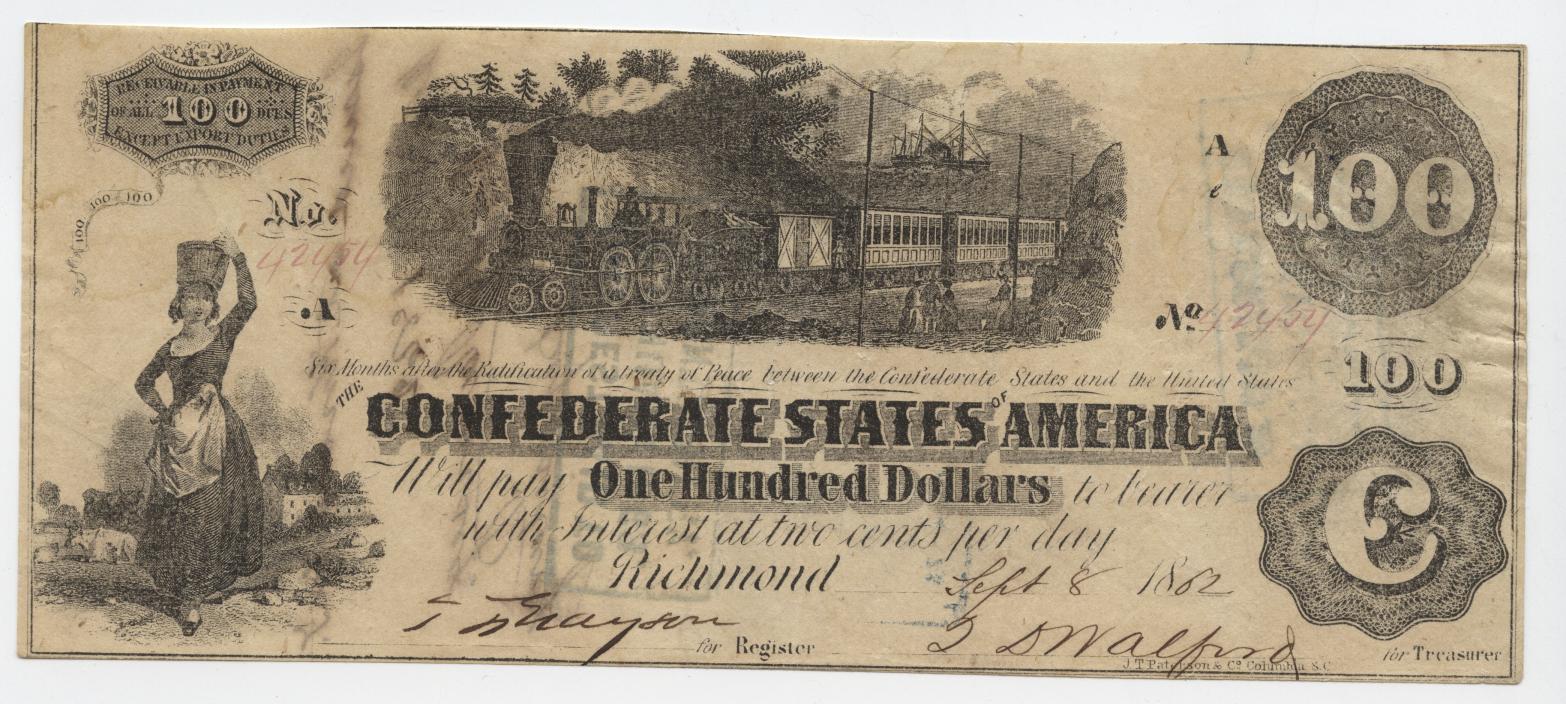 RECEIVABLE IN PAYMENT
OF ALL 100 DUES
EXCEPT EXPORT DUTIES
100 100 100
No.
42454
A
A
e
M.100
No. 42454
100
Six Months after the Ratification of a treaty of Peace between the Confederate States and the United States
THE CONFEDERATE STATES OF AMERICA
Will pay One Hundred Dollars to bearer
with Interest at two cents per day
Richmond Sept 8 1862
C
for Register
for Treasurer
J.T. Paterson & Co. Columbia S.C.